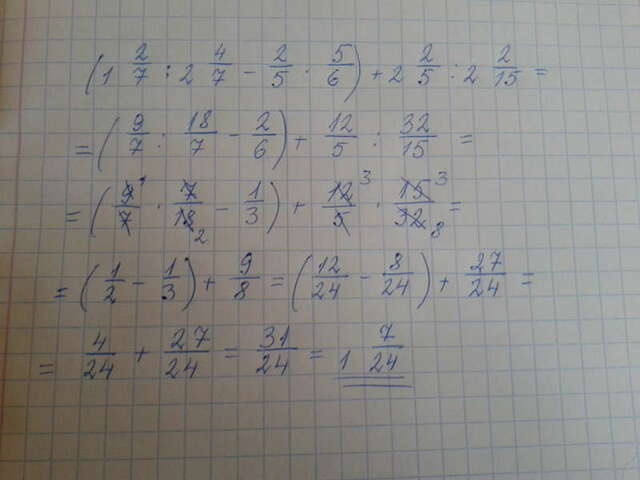 (1 2/7 : 2 4/7 - 2/5 · 5/6) + 2 2/5 : 2 2/15 =
= (9/7 : 18/7 - 2/6) + 12/5 : 32/15 =
= (9/7 1 · 7/18 2 - 1/3) + 12/5 3 · 15/32 3 8 =
= (1/2 - 1/3) + 9/8 = (12/24 - 8/24) + 27/24 =
= 4/24 + 27/24 = 31/24 = 1 7/24